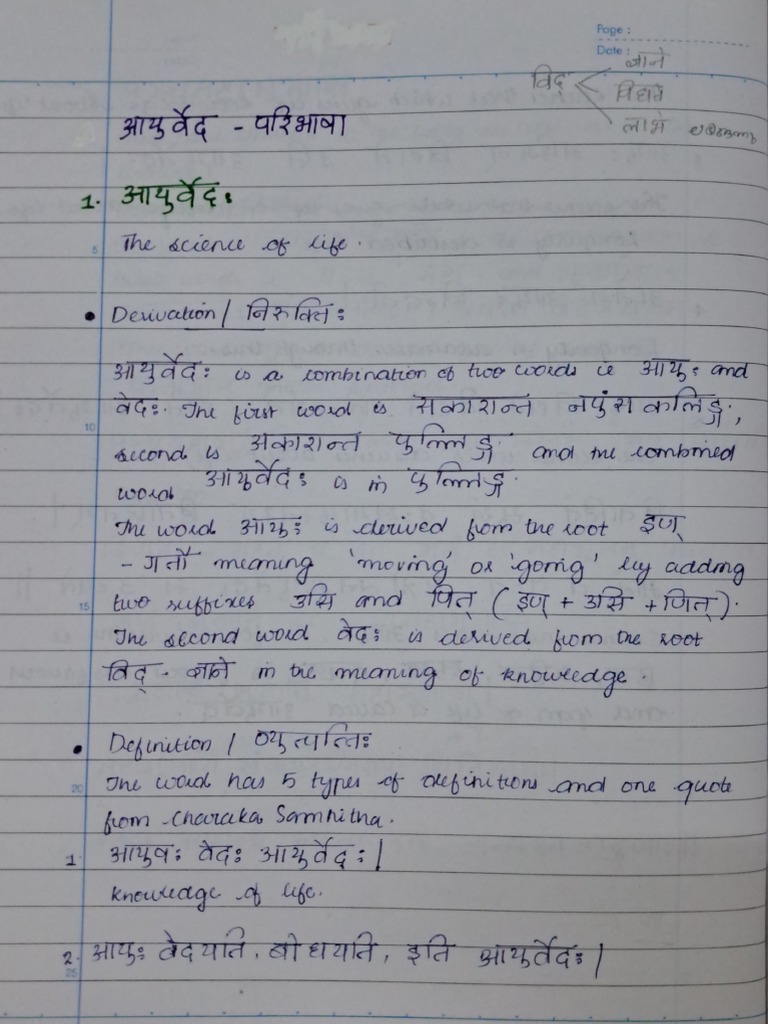 Page :
Date :
विद् ज्ञाने
विद्यते
लाभे
आयुर्वेद - परिभाषा
1. आयुर्वेदः
The science of life.
• Derivation / निरुक्तिः
आयुर्वेदः is a combination of two words ie आयुः and
वेदः. The first word is सकारान्त नपुंसकलिङ्ग,
second is अकारान्त पुल्लिङ्ग and the combined
word आयुर्वेदः is in पुल्लिङ्ग.
The word आयुः is derived from the root इण्
- गतौ meaning 'moving' or 'going' by adding
two suffixes उसि and णित् (इण् + उसि + णित्).
The second word वेदः is derived from the root
विद् - ज्ञाने in the meaning of knowledge
• Definition / व्युत्पत्तिः
The word has 5 types of definitions and one quote
from Charaka Samhitha.
1. आयुषः वेदः आयुर्वेदः |
knowledge of life.
2. आयुः वेदयति, बोधयति, इति आयुर्वेदः |
5
10
15
20
25